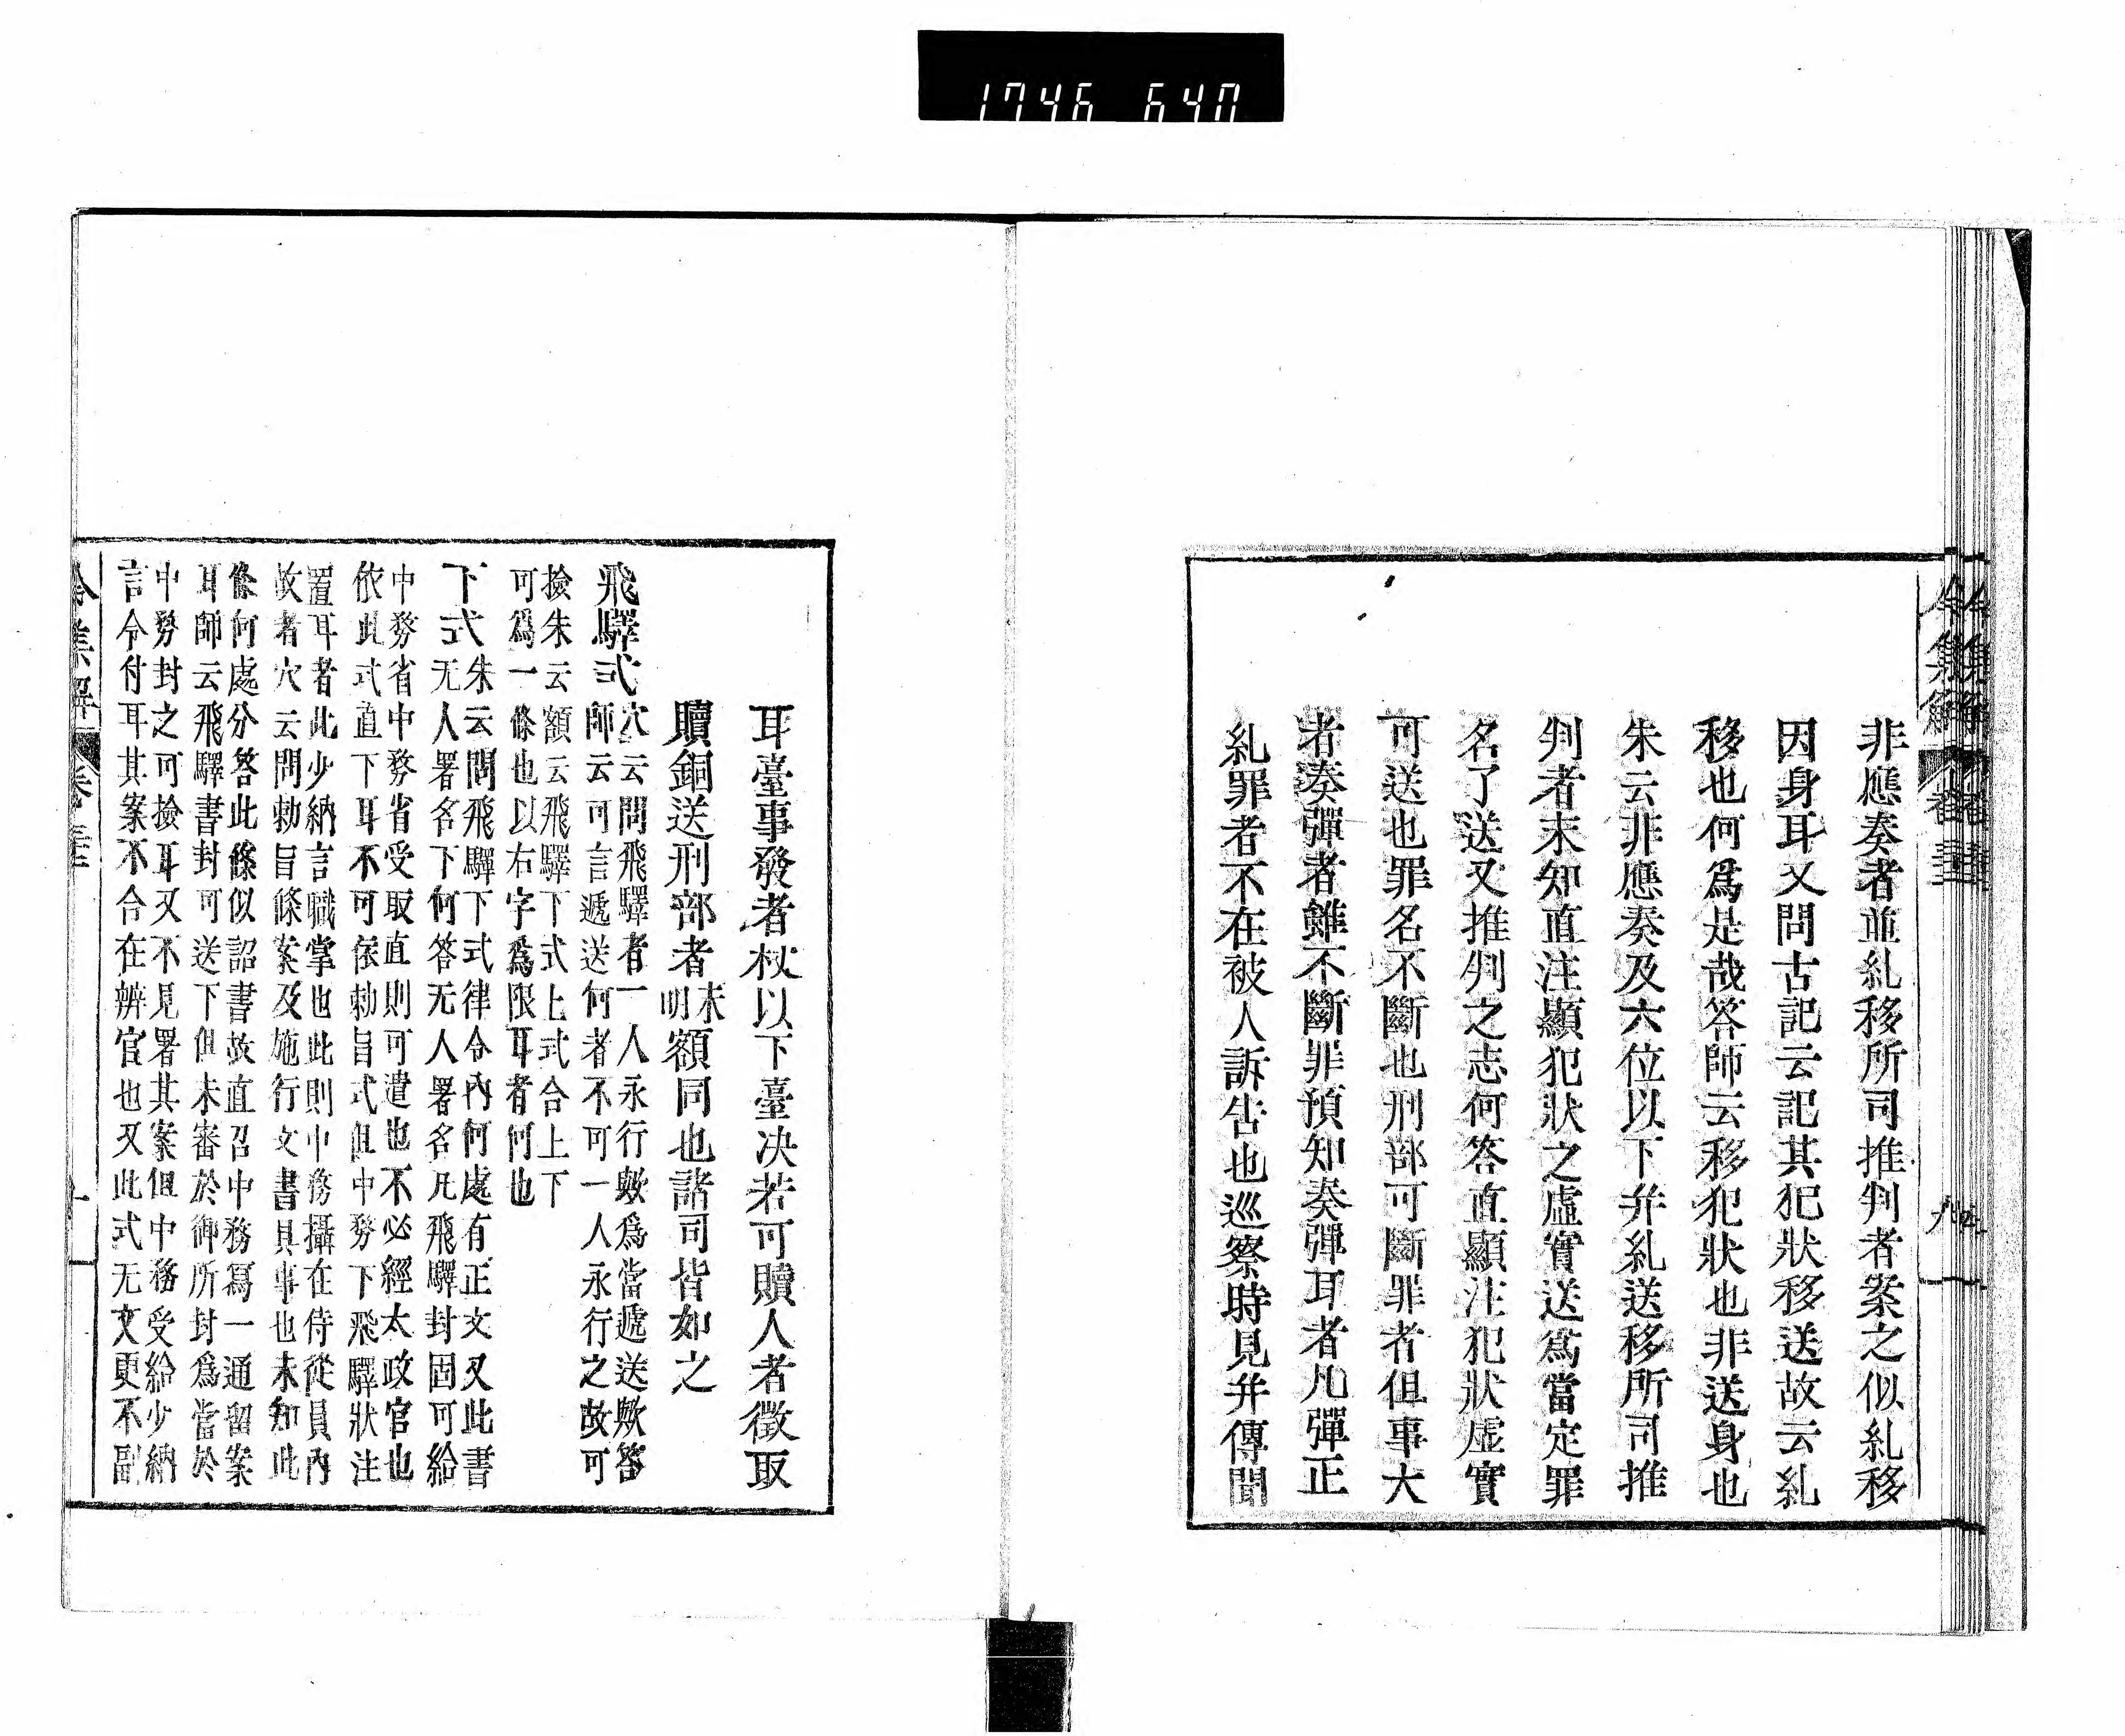 1746 640
令集解 卷三十三 九
非應奏者並糺移所司推判者案之似糺移
因身耳又問古記云記其犯狀移送故云糺
移也何爲是哉答師云移犯狀也非送身也
朱云非應奏及六位以下并糺送移所司推
判者未知直注顯犯狀之虛實送爲當定罪
名了送又推判之志何答直顯注犯狀虛實
可送也罪名不斷也刑部可斷罪者但事大
者奏彈者雖不斷罪預知奏彈耳者凡彈正
糺罪者不在被人訴告也巡察時見并傳聞
耳臺事發者杖以下臺决若可贖人者徵取
贖銅送刑部者未明額同也諸司皆如之
飛驛式穴云問飛驛者一人永行歟爲當遞送歟答
師云可言遞送何者不可一人永行之故可
撿朱云額云飛驛下式上式合上下
可爲一條也以右字爲限耳者何也
下式朱云問飛驛下式律令內何處有正文又此書
无人署名下何答无人署名凡飛驛封函可給
中務省中務省受取直則可遣也不必經太政官也
依此式直下耳不可依勅旨式但中務下飛驛狀注
置耳者此少納言職掌也此則中務攝在侍從員內
故者穴云問勅旨條案及施行文書具事也未知此
條何處分答此條似詔書故直召中務寫一通留案
耳師云飛驛書封可送下但未審於御所封爲當於
中務封之可撿耳又不見署其案但中務受給少納
言令付耳其案不合在辨官也又此式无文更不副
令集解 卷三十三 十